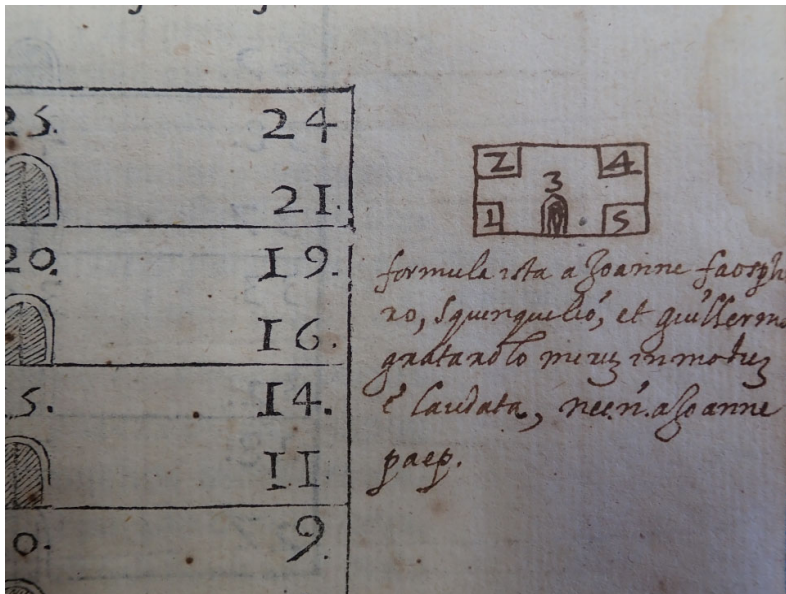 25. 24
21.
20. 19.
16.
5. 14.
11
0. 9.
2 4
3
1 5
formula ista a Joanne faosph
ro, squenquelió, et guillermo
gratarolo miruȝ in moduȝ
é laudata, necń. a Joanne
paep.